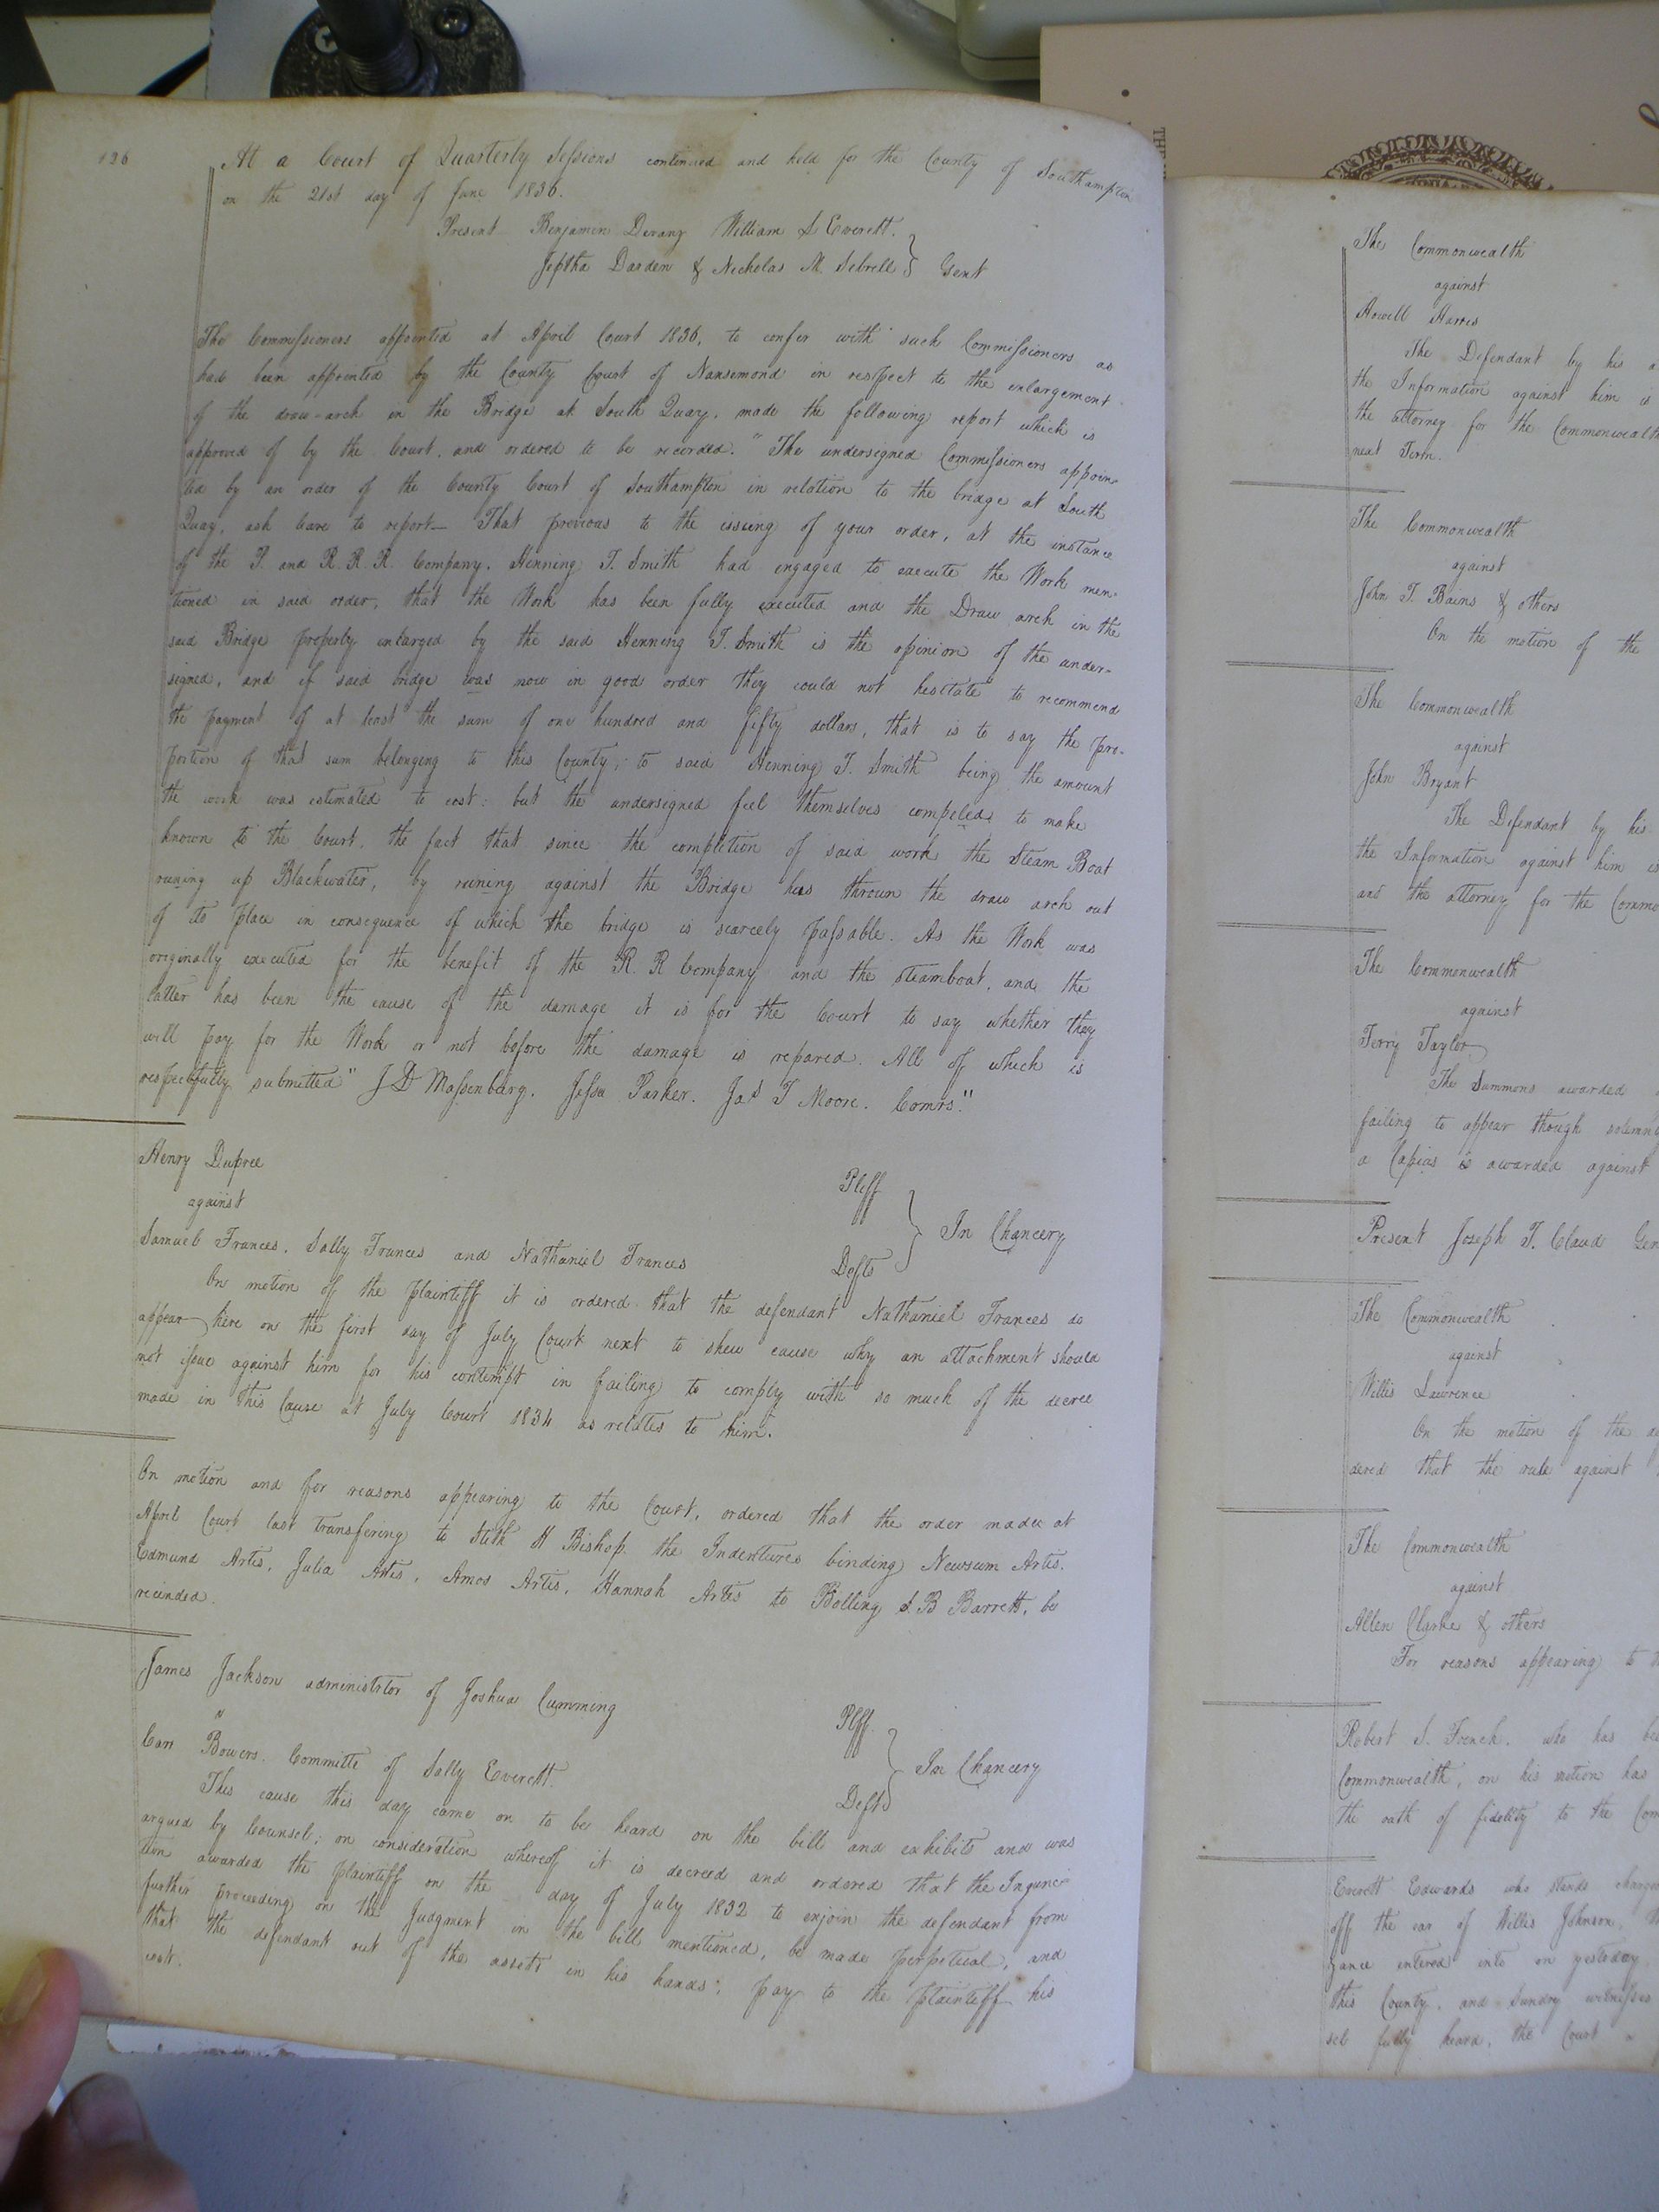 126
At a Court of Quarterly Sessions continued and held for the County of Southampton
on the 21st day of June 1836.
Present Benjamin Devany William S Everett.
Jeptha Darden & Nicholas M. Sebrell } Gent
The Commissioners appointed at April Court 1836, to confer with such Commissioners as
had been appointed by the County Court of Nansemond in respect to the enlargement
of the draw-arch in the Bridge at South Quay, made the following report which is
approved of by the Court, and ordered to be recorded. "The undersigned Commissioners appoin-
ted by an order of the County Court of Southampton in relation to the bridge at South
Quay, ask leave to report— That previous to the issuing of your order, at the instance
of the P. and R. R. R. Company. Henning T. Smith had engaged to execute the Work men-
tioned in said order, that the Work has been fully executed and the Draw arch in the
said Bridge properly enlarged by the said Henning T. Smith is the opinion of the under-
signed, and if said bridge was now in good order they could not hesitate to recommend
the payment of at least the sum of one hundred and fifty dollars, that is to say the pro-
portion of that sum belonging to this County, to said Henning T. Smith being the amount
the work was estimated to cost: but the undersigned feel themselves compeled to make
known to the Court, the fact that since the completion of said work the Steam Boat
runing up Blackwater, by runing against the Bridge has thrown the draw arch out
of its place in consequence of which the bridge is scarcely passable. As the Work was
originally executed for the benefit of the R. R Company and the steamboat, and the
latter has been the cause of the damage it is for the Court to say whether they
will pay for the Work or not before the damage is repared. All of which is
respectfully submitted" J D Massenburg. Jesse Parker. Jas T Moore. Comrs."
Henry Dupree Pltff
against } In Chancery
Samuel Frances, Sally Frances and Nathaniel Frances Defts
On motion of the plaintiff it is ordered that the defendant Nathaniel Frances do
appear here on the first day of July Court next to shew cause why an attachment should
not issue against him for his contempt in failing to comply with so much of the decree
made in this Cause at July Court 1834 as relates to him.
On motion and for reasons appearing to the Court, ordered that the order made at
April Court last transfering to Sith H Bishop the Indentures binding Newsum Artis.
Edmund Artis, Julia Artis, Amos Artis, Hannah Artis to Bolling S. B Barrett, be
recinded.
James Jackson administrtor of Joshua Cumming Plff.
" } In Chancery
Carr Bowers. Committe of Sally Everett. Defts
This cause this day came on to be heard on the bill and exhibits and was
argued by Counsel; on consideration whereof it is decreed and ordered that the Injunc-
tion awarded the plaintiff on the day of July 1832 to enjoin the defendant from
further proceeding on the Judgment in the bill mentioned, be made perpetual, and
that the defendant out of the assets in his hands; pay to the plaintiff his
cost.
The Commonwealth
against
Howell Harris
The Defendant by his
the Information against him is
the attorney for the Commonwealth
next Term.
The Commonwealth
against
John T. Bains & others
On the motion of the
The Commonwealth
against
John Bryant
The Defendant by his
the Information against him is
and the attorney for the Commo
The Commonwealth
against
Terry Taylor
The Summons awarded
failing to appear though solemnly
a Capias is awarded against
Present Joseph T. Claud Gen
The Commonwealth
against
Willis Lawrence
On the motion of the
dered that the rule against
The Commonwealth
against
Allen Clarke & others
For reasons appearing to
Robert S. French. who has be
Commonwealth, on his motion has
the oath of fidelity to the Com
Everett Edwards who stands charge
off the ear of Willis Johnson,
zance entered into on yesterday
this County, and Sundry witnesses
sel fully heard, the Court